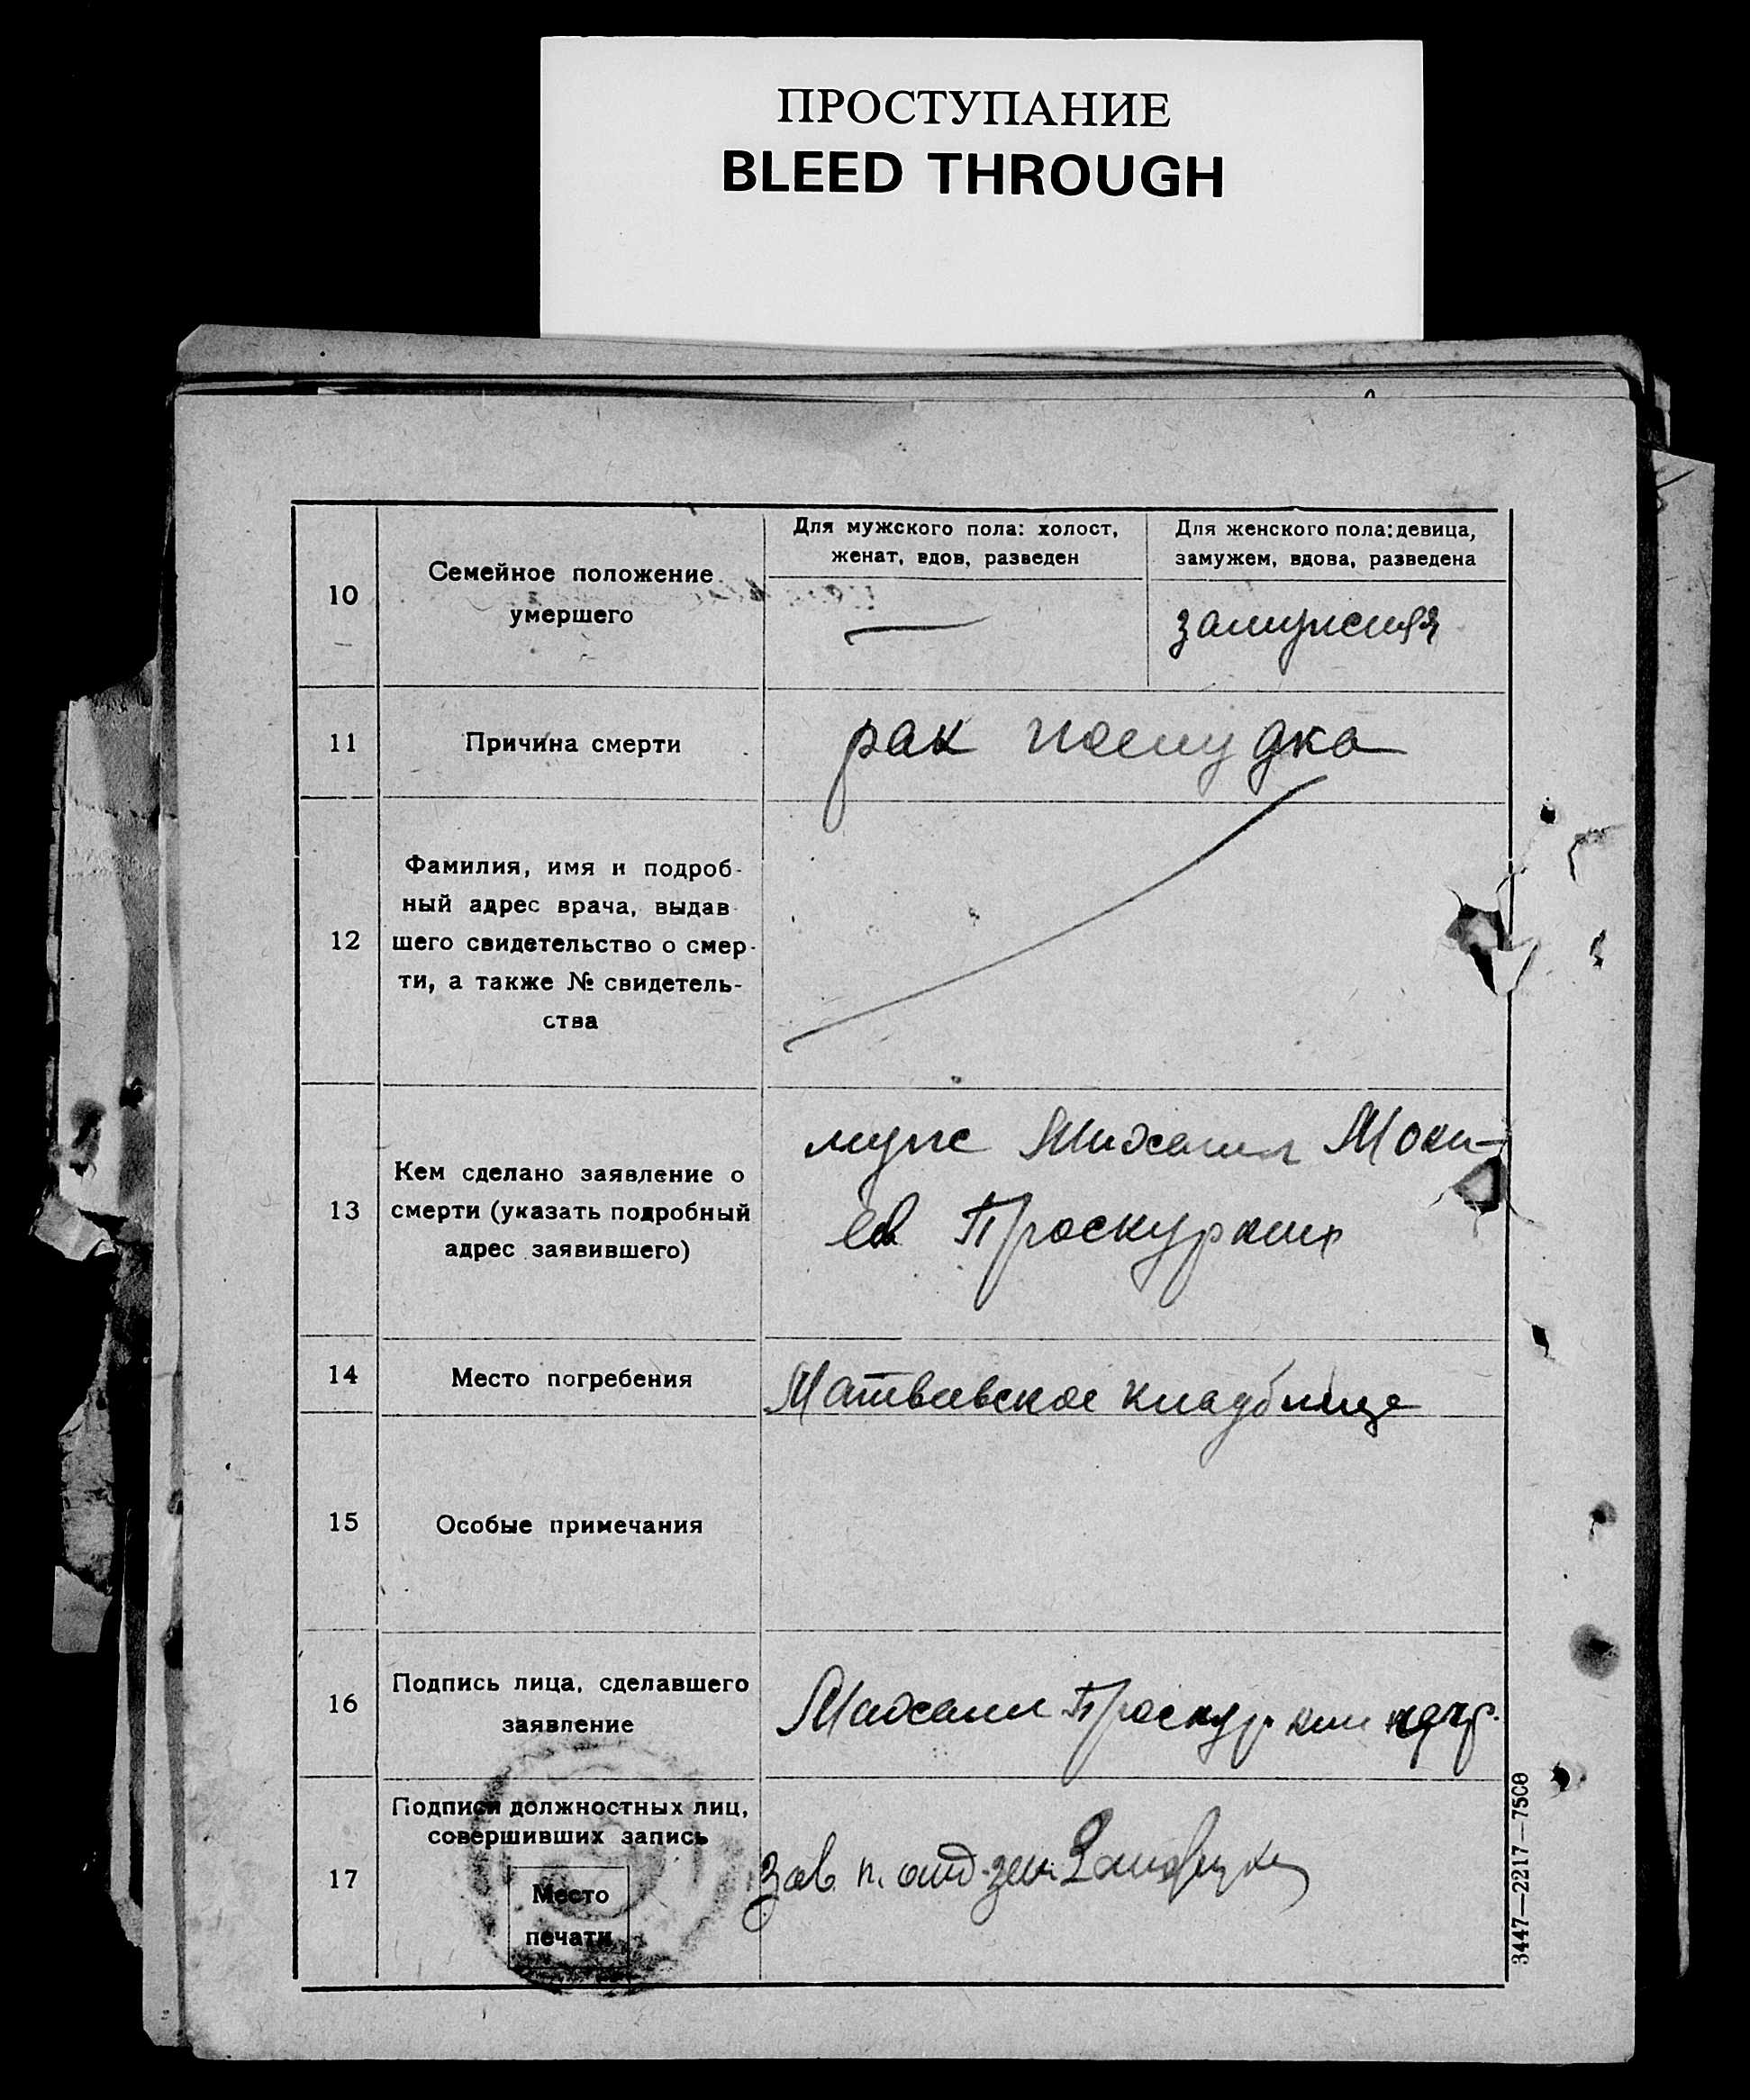 ПРОСТУПАНИЕ
BLEED THROUGH
10
Семейное положение
умершего
Для мужского пола: холост,
женат, вдов, разведен
Для женского пола: девица,
замужем, вдова, разведена
—
замужняя
11
Причина смерти
рак желудка
12
Фамилия, имя и подроб-
ный адрес врача, выдав
шего свидетельство о смер-
ти, а также № свидетель-
ства
13
Кем сделано заявление о
смерти (указать подробный
адрес заявившего)
муж Михаил Моки-
ев Проскуркин
14
Место погребения
Матвеевское кладбище
15
Особые примечания
16
Подпись лица, сделавшего
заявление
Михаил Проскуркин
17
Подписи должностных лиц,
совершивших запись
Место
печати
Зав. п. отд.
3447—2217—7500